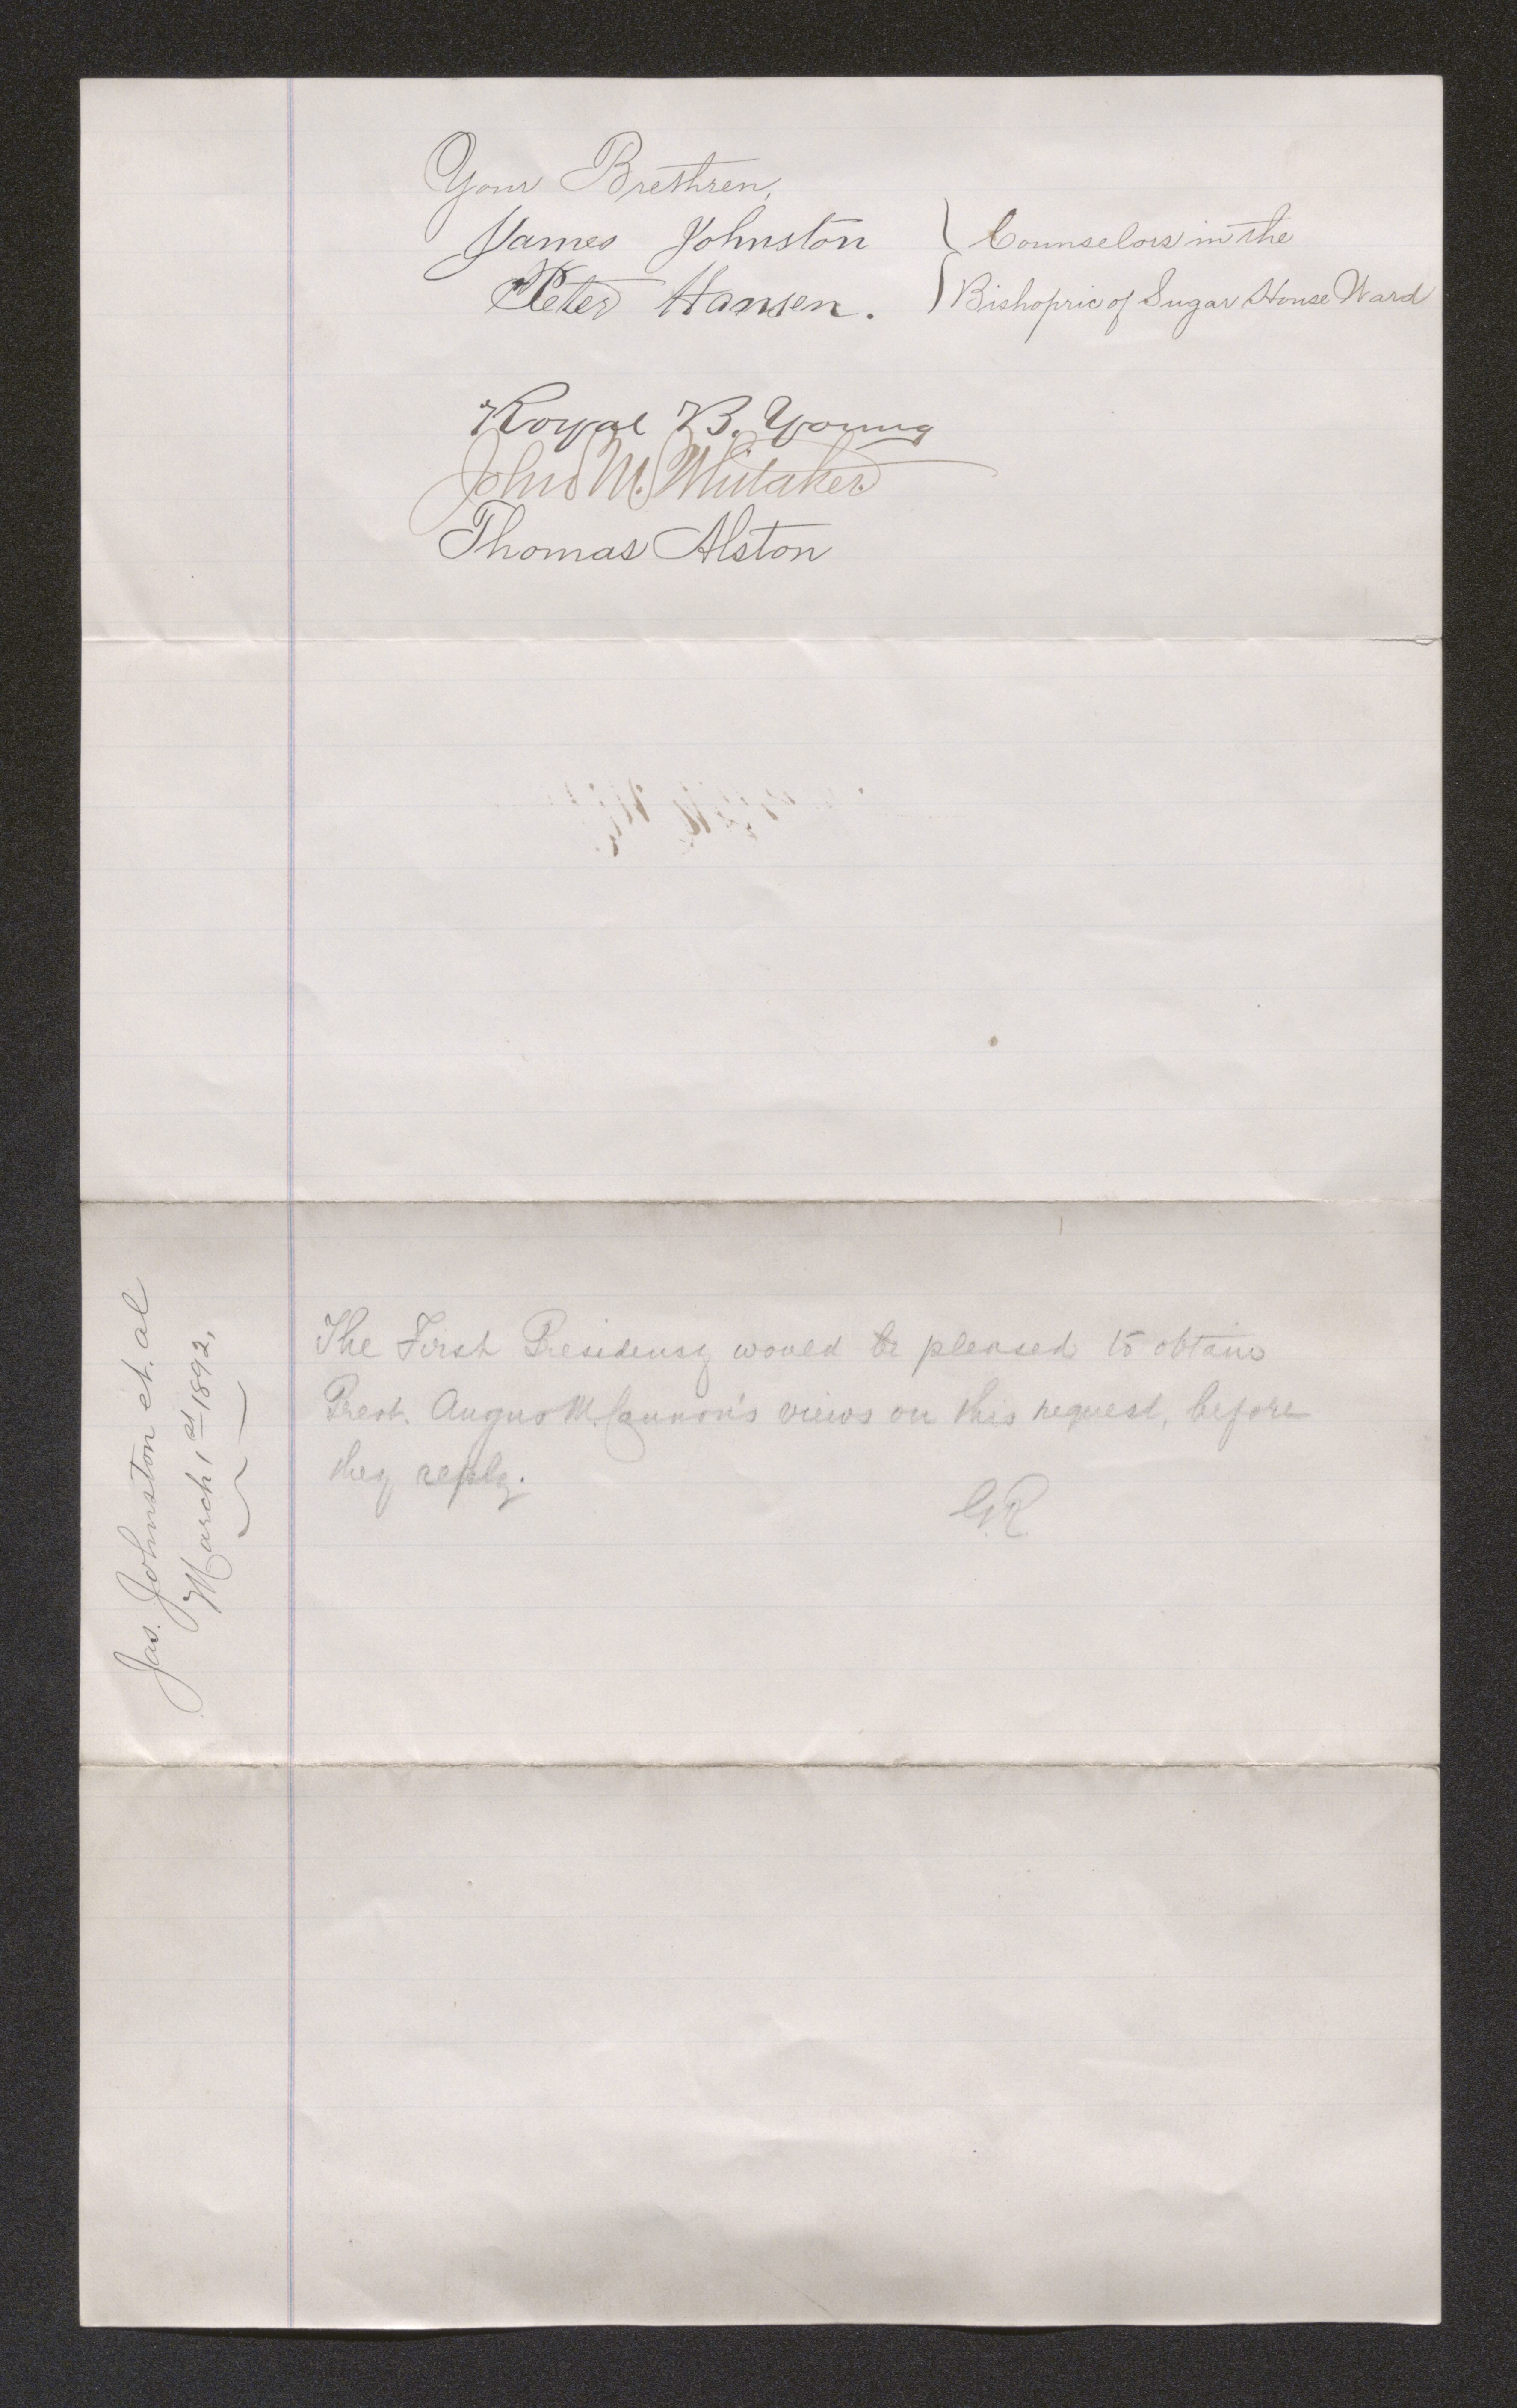 Your Brethren,
James Johnston } Counselors in the
Peter Hansen. } Bishopric of Sugar House Ward
Royal B. Young
John M. Whitaker
Thomas Alston
Jas. Johnston et. al
March 1st 1892,
The First Presidency would be pleased to obtain
Prest. Angus M. Cannon's views on this request, before
they reply.
G.R.